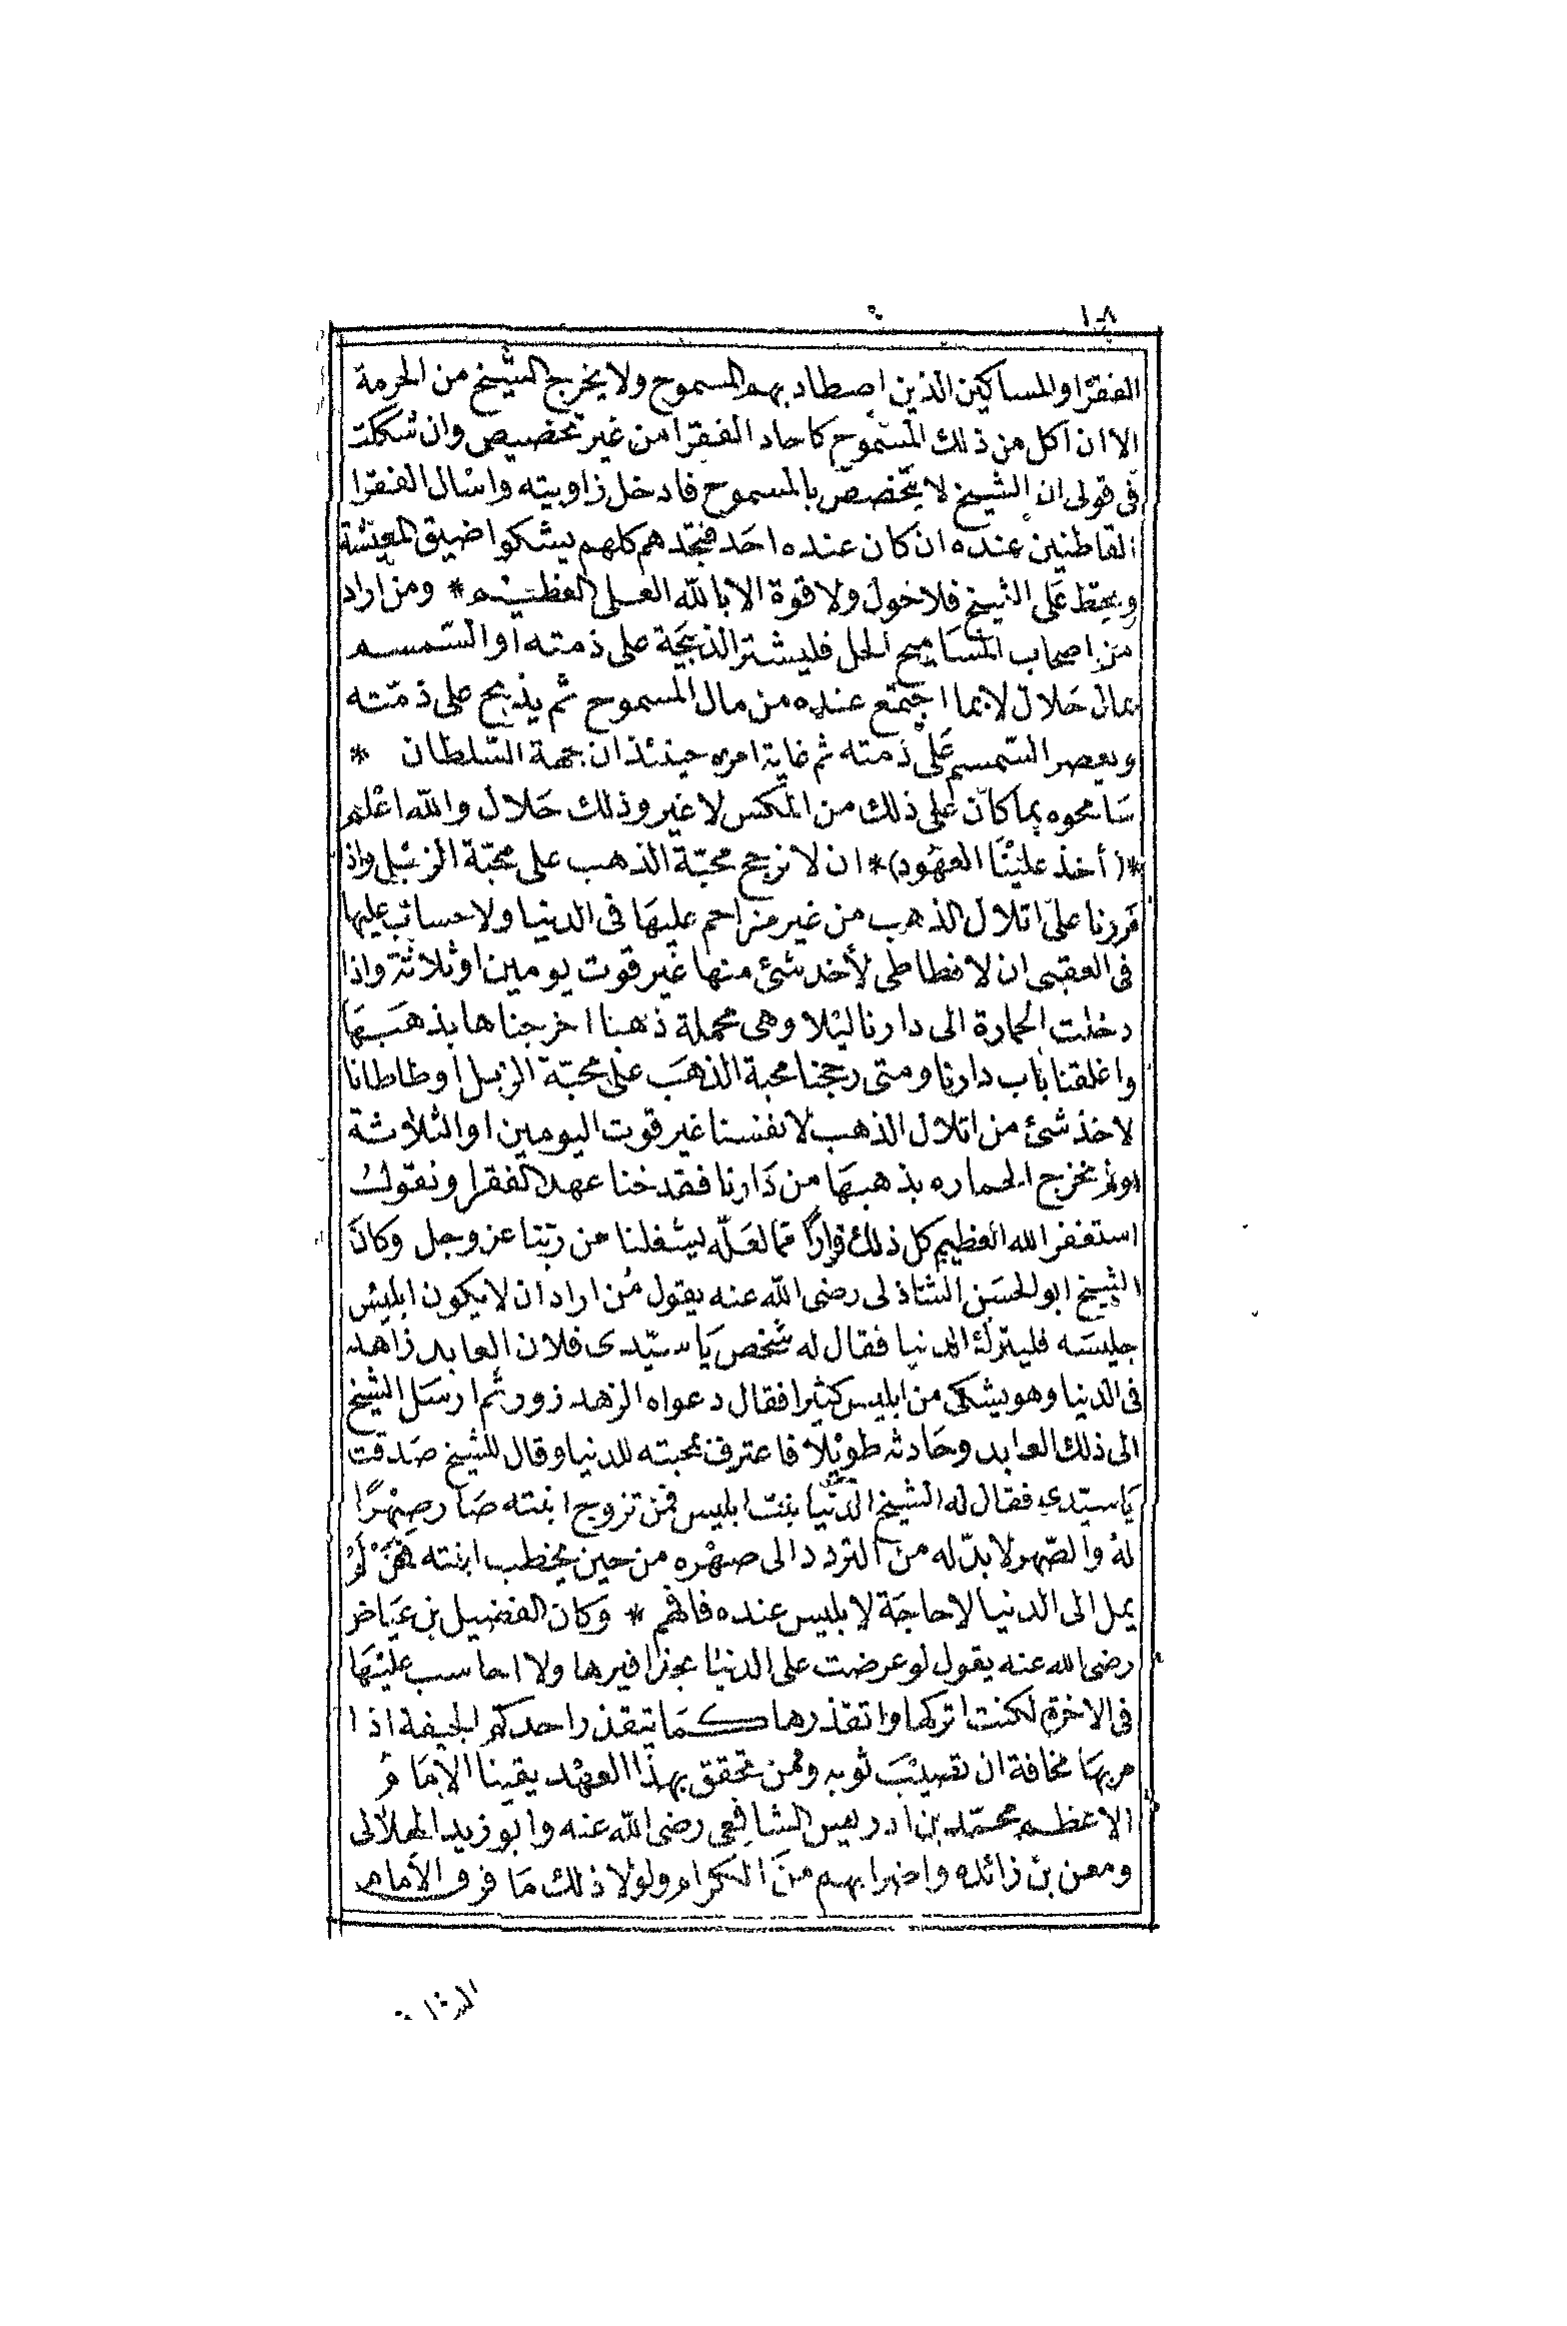 ١٠٨
الفقرا والمساكين الذين اصطاد بهم المسموح ولا يخرج الشيخ من الحرمة
الا ان اكل من ذلك المسموح كاحاد الفقرا من غير تخصيص وان شككت
فى قولى ان الشيخ لا يتخصص بالمسموح فادخل زاويته واسال الفقرا
القاطنين عنده ان كان عنده احد فتجدهم كلهم يشكوا ضيق المعيشة
ويحط على الشيخ فلا حول ولا قوة الا بالله العلى العظيم * ومن اراد
من اصحاب المساميح الحل فليشتر الذبيحة على ذمته او السمسم
بمال حلال لا بما اجتمع عنده من مال المسموح ثم يذبح على ذمته
ويعصر السمسم على ذمته ثم غاية امره حينئذ ان جهة السلطان *
سامحوه بما كان على ذلك من المكس لا غير وذلك حلال والله اعلم
*(أخذ علينا العهود)* ان لا نرجح محبة الذهب على محبة الزبل واذ
مررنا على اتلال الذهب من غير مزاحم عليها فى الدنيا ولا حساب عليها
فى العقبى ان لا نطاطى لأخذ شئ منها غير قوت يومين او ثلاثة واذا
دخلت الحمارة الى دارنا ليلا وهى محملة ذهبا اخرجناها بذهبها
واغلقنا باب دارنا ومتى رجحنا محبة الذهب على محبة الزبل او طاطانا
لاخذ شئ من اتلال الذهب لانفسنا غير قوت اليومين او الثلاثة
او لم نخرج الحماره بذهبها من دارنا فقد خنا عهد الفقرا ونقول
استغفر الله العظيم كل ذلك فرارا مما لعله ليشغلنا عن ربنا عز وجل وكان
الشيخ ابو الحسن الشاذلى رضى الله عنه يقول من اراد ان لا يكون ابليس
جليسه فليترك الدنيا فقال له شخص يا سيدى فلان العابد زاهد
فى الدنيا وهو يشكى من ابليس كثيرا فقال دعواه الزهد زور ثم ارسل الشيخ
الى ذلك العابد وحادثه طويلا فاعترف بمحبته للدنيا وقال للشيخ صدقت
يا سيدى فقال له الشيخ الدنيا بنت ابليس فمن تزوج ابنته صار صهرا
له والصهر لا بد له من التردد الى صهره من حين يخطب ابنته فمن لم
يمل الى الدنيا لا حاجة لابليس عنده فافهم * وكان الفضيل بن عياض
رضى الله عنه يقول لو عرضت على الدنيا بحذافيرها ولا احاسب عليها
فى الاخرة لكنت اتركها واتقذرها كما يتقذر احدكم الجيفة اذا
مر بها مخافة ان تصيب ثوبه وممن تحقق بهذا العهد يقينا الامام
الاعظم محمد بن ادريس الشافعى رضى الله عنه وابو زيد الهلالى
ومعن بن زائده واضرابهم من الكرام ولولا ذلك ما فرق الامام